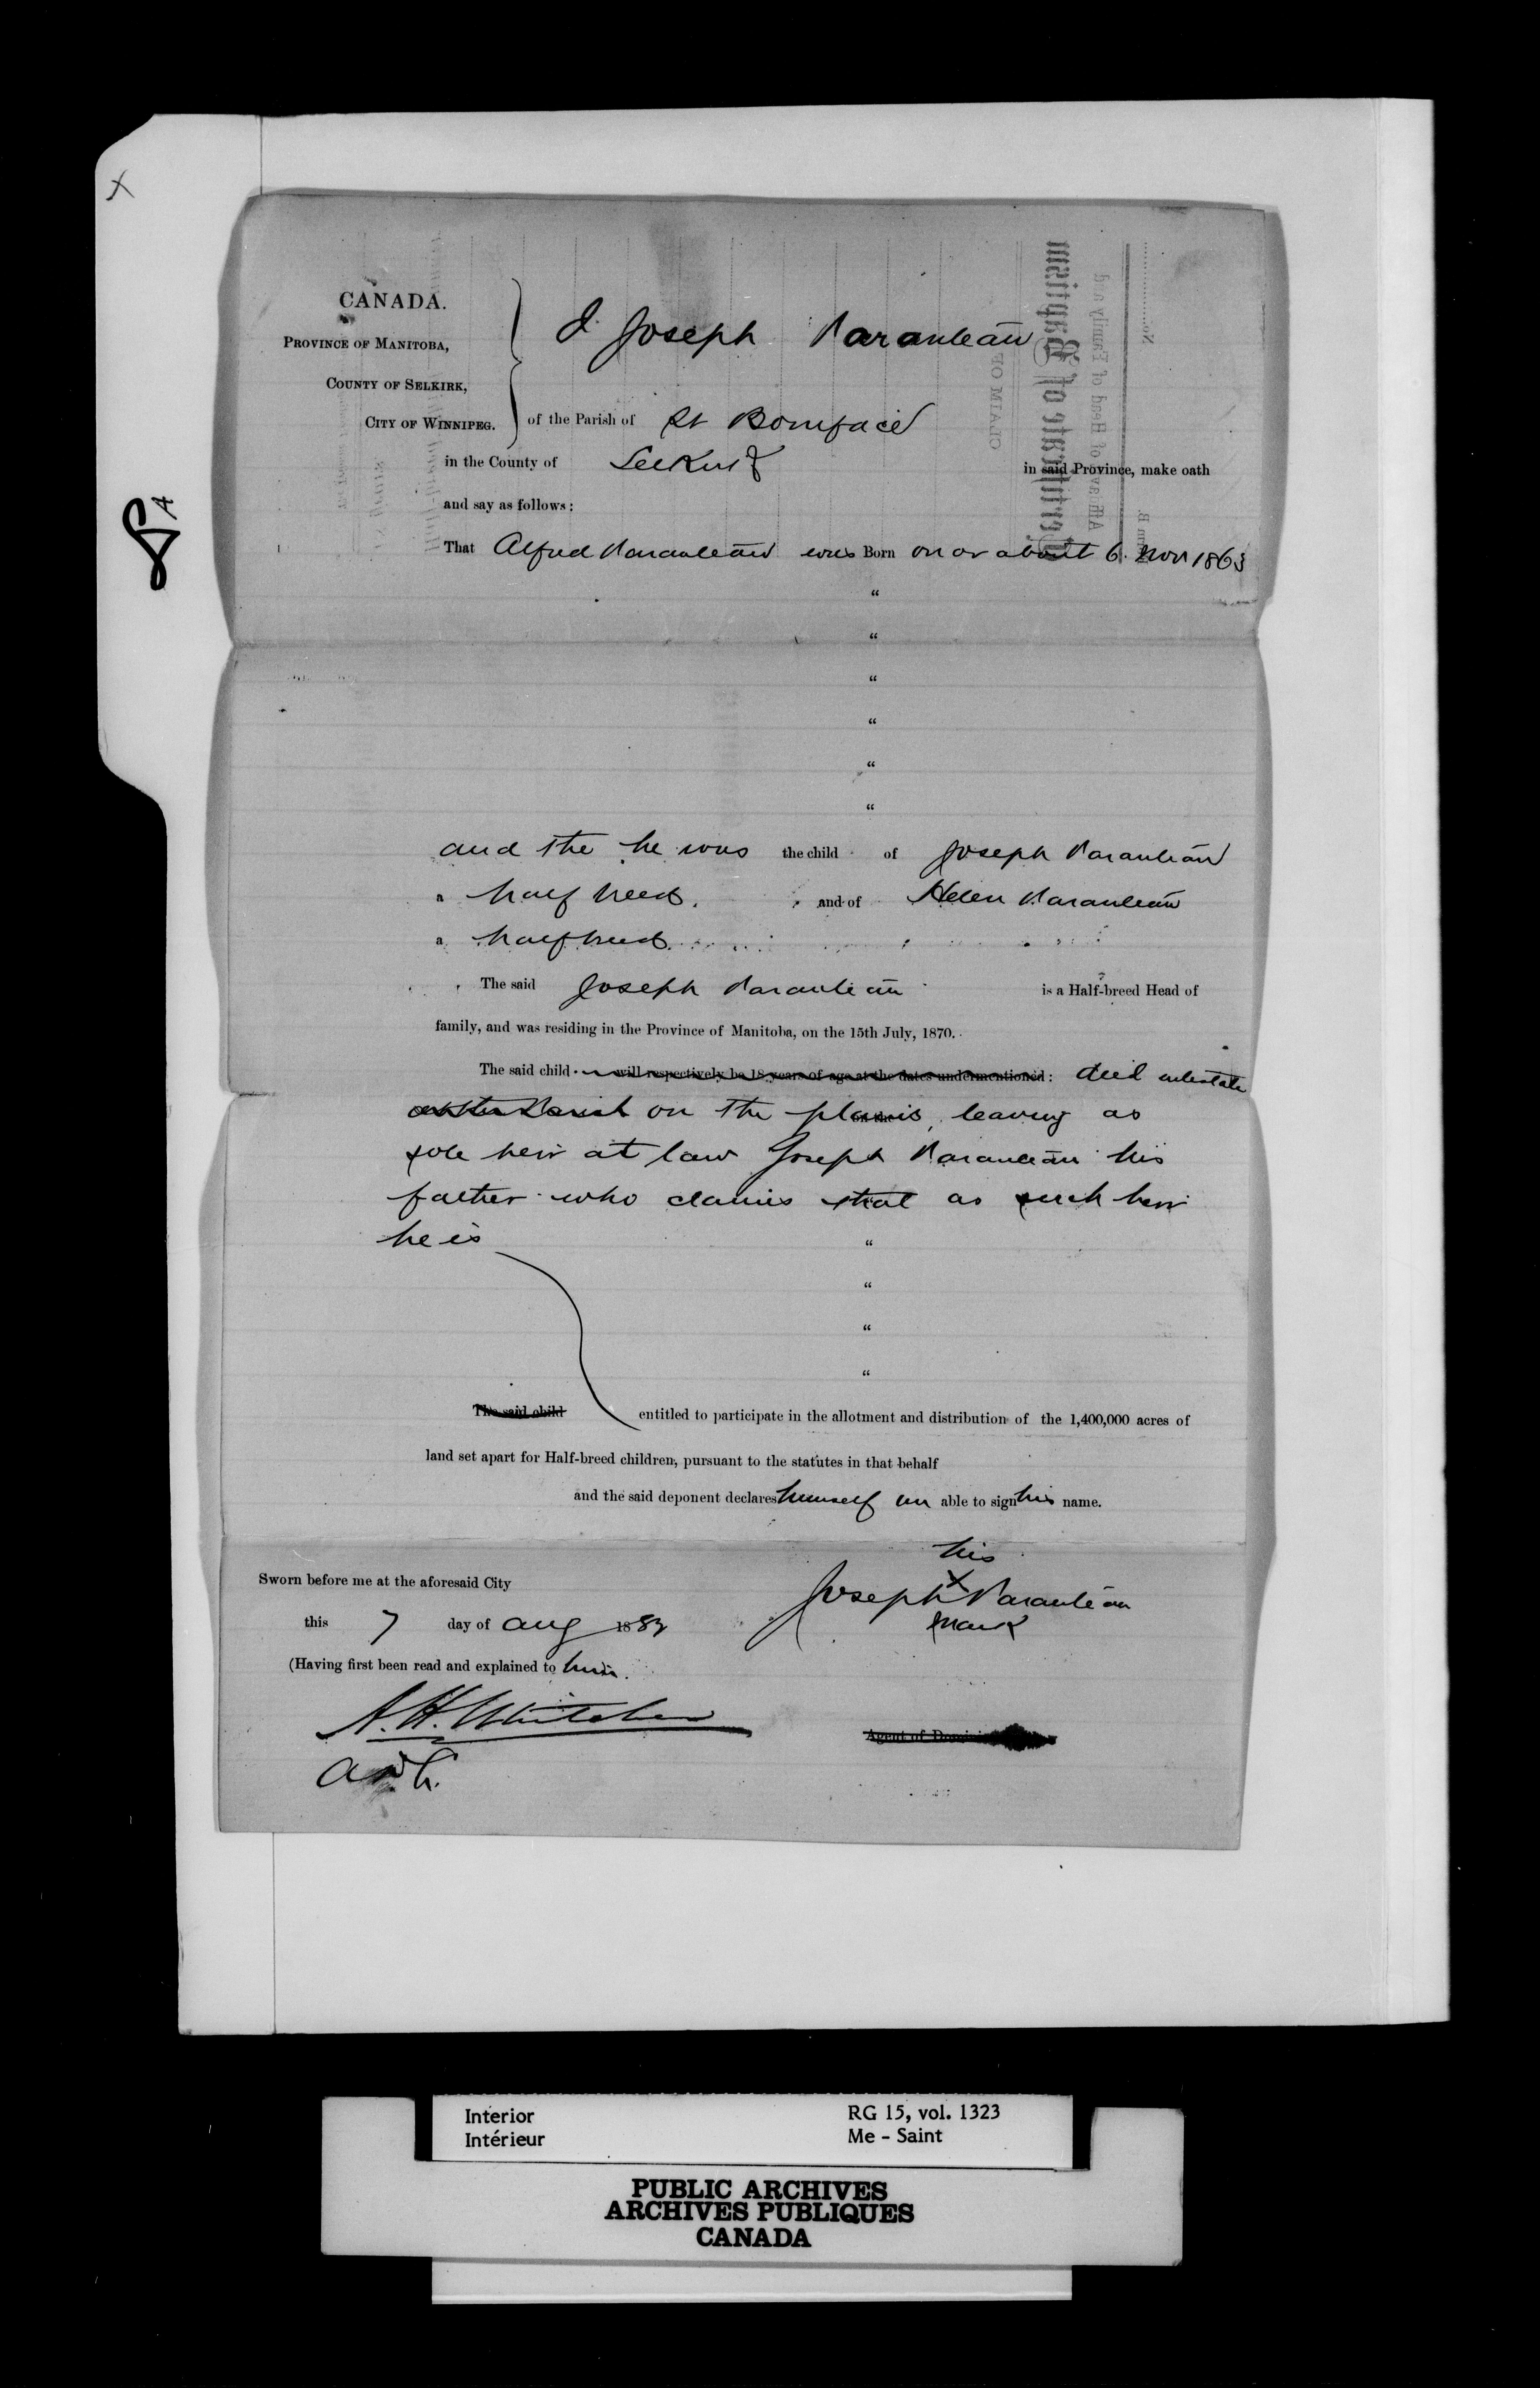 CANADA.
PROVINCE OF MANITOBA,
COUNTY OF SELKIRK,
CITY OF WINNIPEG.
I Joseph Paranteau
of the Parish of St Boniface
in the County of Selkirk in said Province, make oath
and say as follows:
That Alfred Paranteau was Born on or about 6 Nov 1863
"
"
"
"
"
"
and the he was the child of Joseph Paranteau
a half breed. and of Helen Paranteau
a half breed.
The said Joseph Paranteau is a Half-breed Head of
family, and was residing in the Province of Manitoba, on the 15th July, 1870.
The said child will respectively be 18 years of age at the dates undermentioned: died intestate
Parish on the plains, leaving as
sole heir at law Joseph Paranteau his
father who claims that as such heir
he is "
"
"
"
The said child entitled to participate in the allotment and distribution of the 1,400,000 acres of
land set apart for Half-breed children, pursuant to the statutes in that behalf
and the said deponent declares himself un able to sign his name.
his
Sworn before me at the aforesaid City
Joseph X Paranteau
mark
this 7 day of Aug 1882
(Having first been read and explained to him.
A. H. Whitcher
Agent of
CERTIFICATE of Baptism
CLAIM OF
Affidavit of Head of Family
No.
Interior
Intérieur
RG 15, vol. 1323
Me - Saint
PUBLIC ARCHIVES
ARCHIVES PUBLIQUES
CANADA